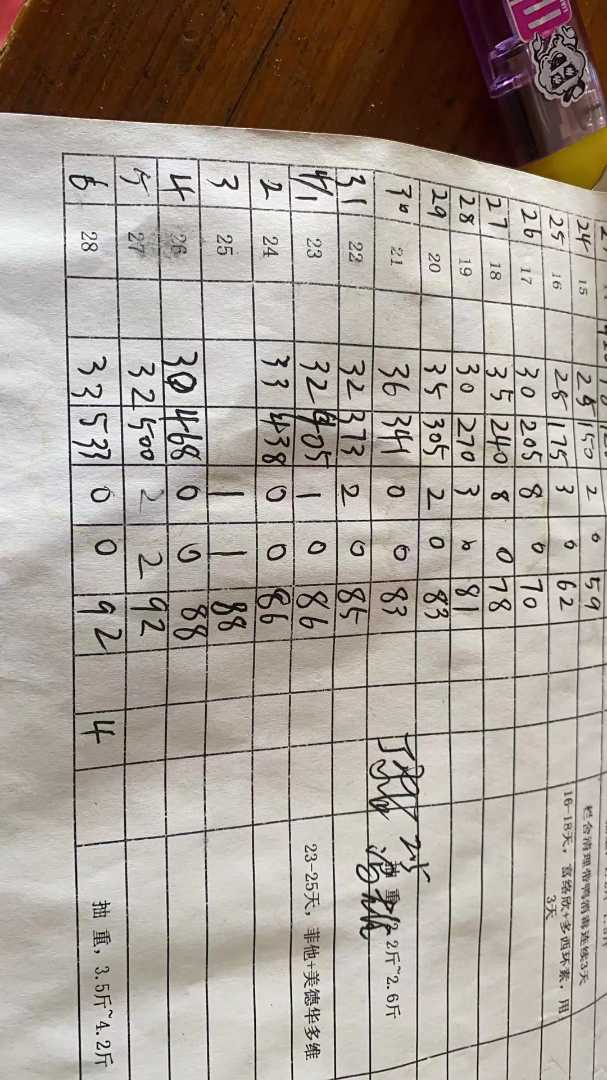 24 15 25 150 2 0 59 栏舍清理带鸭消毒连续3天
25 16 25 175 3 0 62 16-18天，富络欣+多西环素，用
3天
26 17 30 205 8 0 70
27 18 35 240 8 0 78
28 19 30 270 3 0 81
29 20 35 305 2 0 83
30 21 36 341 0 0 83 抽重 2斤~2.6斤
31 22 32 373 2 0 85
4/1 23 32 405 1 0 86 23-25天，菲他+美德华多维
2 24 33 438 0 0 86
3 25 1 1 88
4 26 30 468 0 0 88
5 27 32 500 2 2 92
6 28 33 533 0 0 92 4 抽重，3.5斤~4.2斤